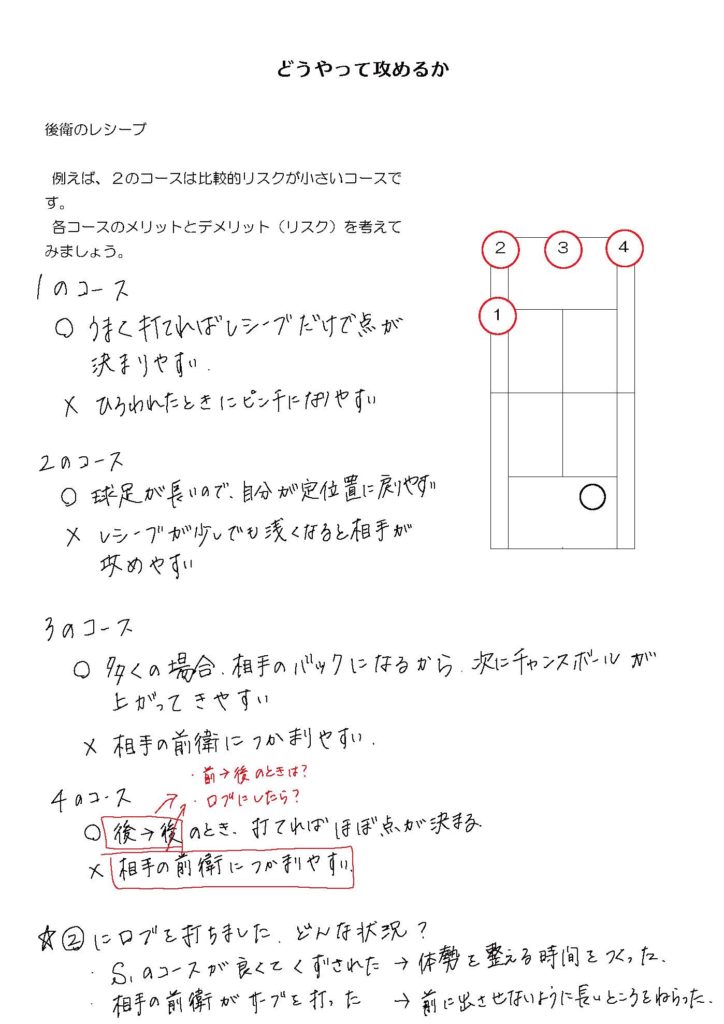 どうやって攻めるか
後衛のレシーブ
例えば、２のコースは比較的リスクが小さいコースで
す。
各コースのメリットとデメリット（リスク）を考えて
みましょう。
2 3 4
1
1のコース
○ うまく打てればレシーブだけで点が
決まりやすい.
× ひろわれたときにピンチになりやすい
2のコース
○ 球足が長いので、自分が定位置に戻りやすい
× レシーブが少しでも浅くなると相手が
攻めやすい
3のコース
○ 多くの場合、相手のバックになるから、次にチャンスボールが
上がってきやすい
× 相手の前衛につかまりやすい.
・前→後のときは?
・ロブにしたら?
4のコース
○ 後→後のとき、打てればほぼ点が決まる
× 相手の前衛につかまりやすい.
☆②にロブを打ちました、どんな状況?
・S₁のコースが良くてくずされた → 体勢を整える時間をつくった.
・相手の前衛がサーブを打った → 前に出させないように長いところをねらった.